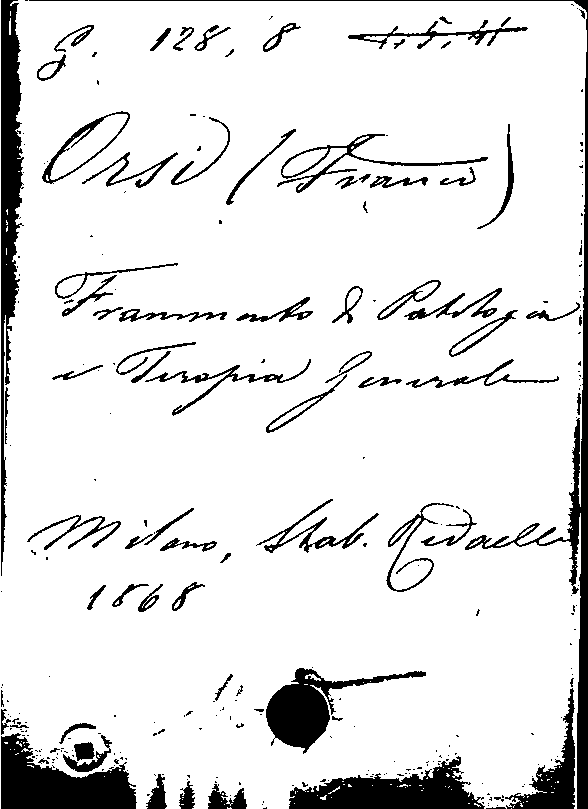 G. 128, 8 1.5.41
Orsi (Franco)
Frammento di Patologia
e Terapia Generale
Milano, Stab. Redaelli
1868